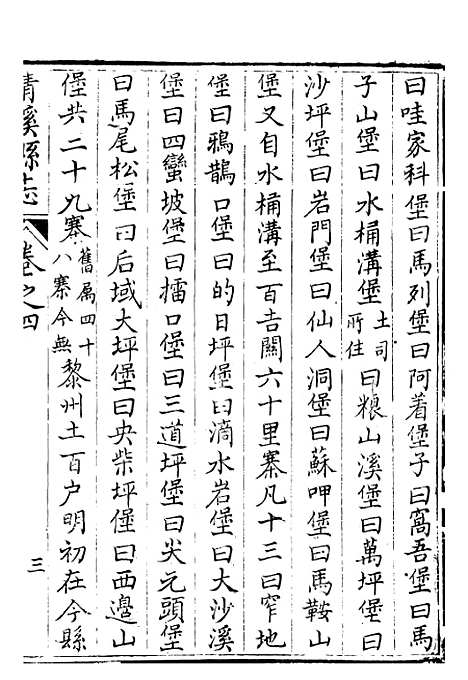 曰哇家科堡曰馬列堡曰阿着堡子曰窩吾堡曰馬
子山堡曰水桶溝堡土司所住曰粮山溪堡曰萬坪堡曰
沙坪堡曰岩門堡曰仙人洞堡曰蘇呷堡曰馬鞍山
堡又自水桶溝至百吉關六十里寨凡十三曰窄地
堡曰鴉鵲口堡曰的日坪堡曰滴水岩堡曰大沙溪
堡曰四蠻坡堡曰擂口堡曰三道坪堡曰尖元頭堡
曰馬尾松堡曰后域大坪堡曰央柴坪堡曰西邊山
堡共二十九寨舊属四十八寨今無黎州土百户明初在今縣
清溪縣志 卷之四 三